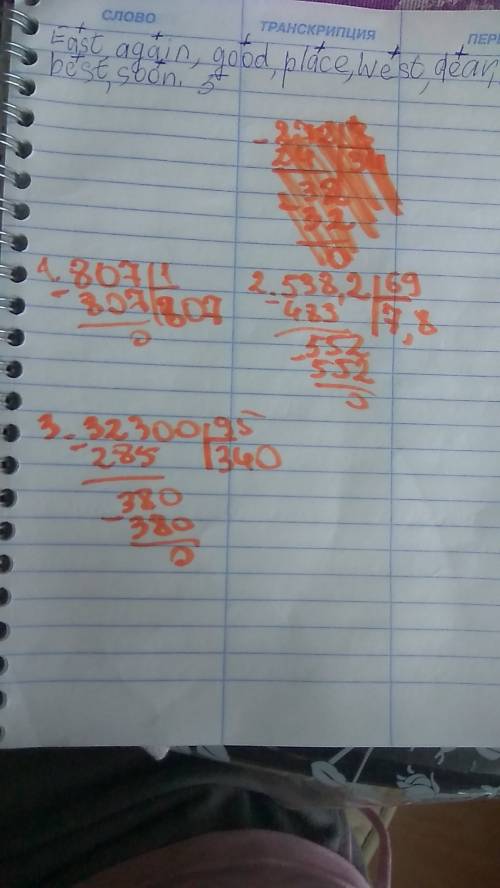 СЛОВО ТРАНСКРИПЦИЯ ПЕРЕ
East, again, good, place, west, dear,
best, soon. 5
1. 807 1
- 807 807
0
2. 538,2 69
- 483 7,8
552
- 552
0
3. 32300 95
- 285 340
380
- 380
0